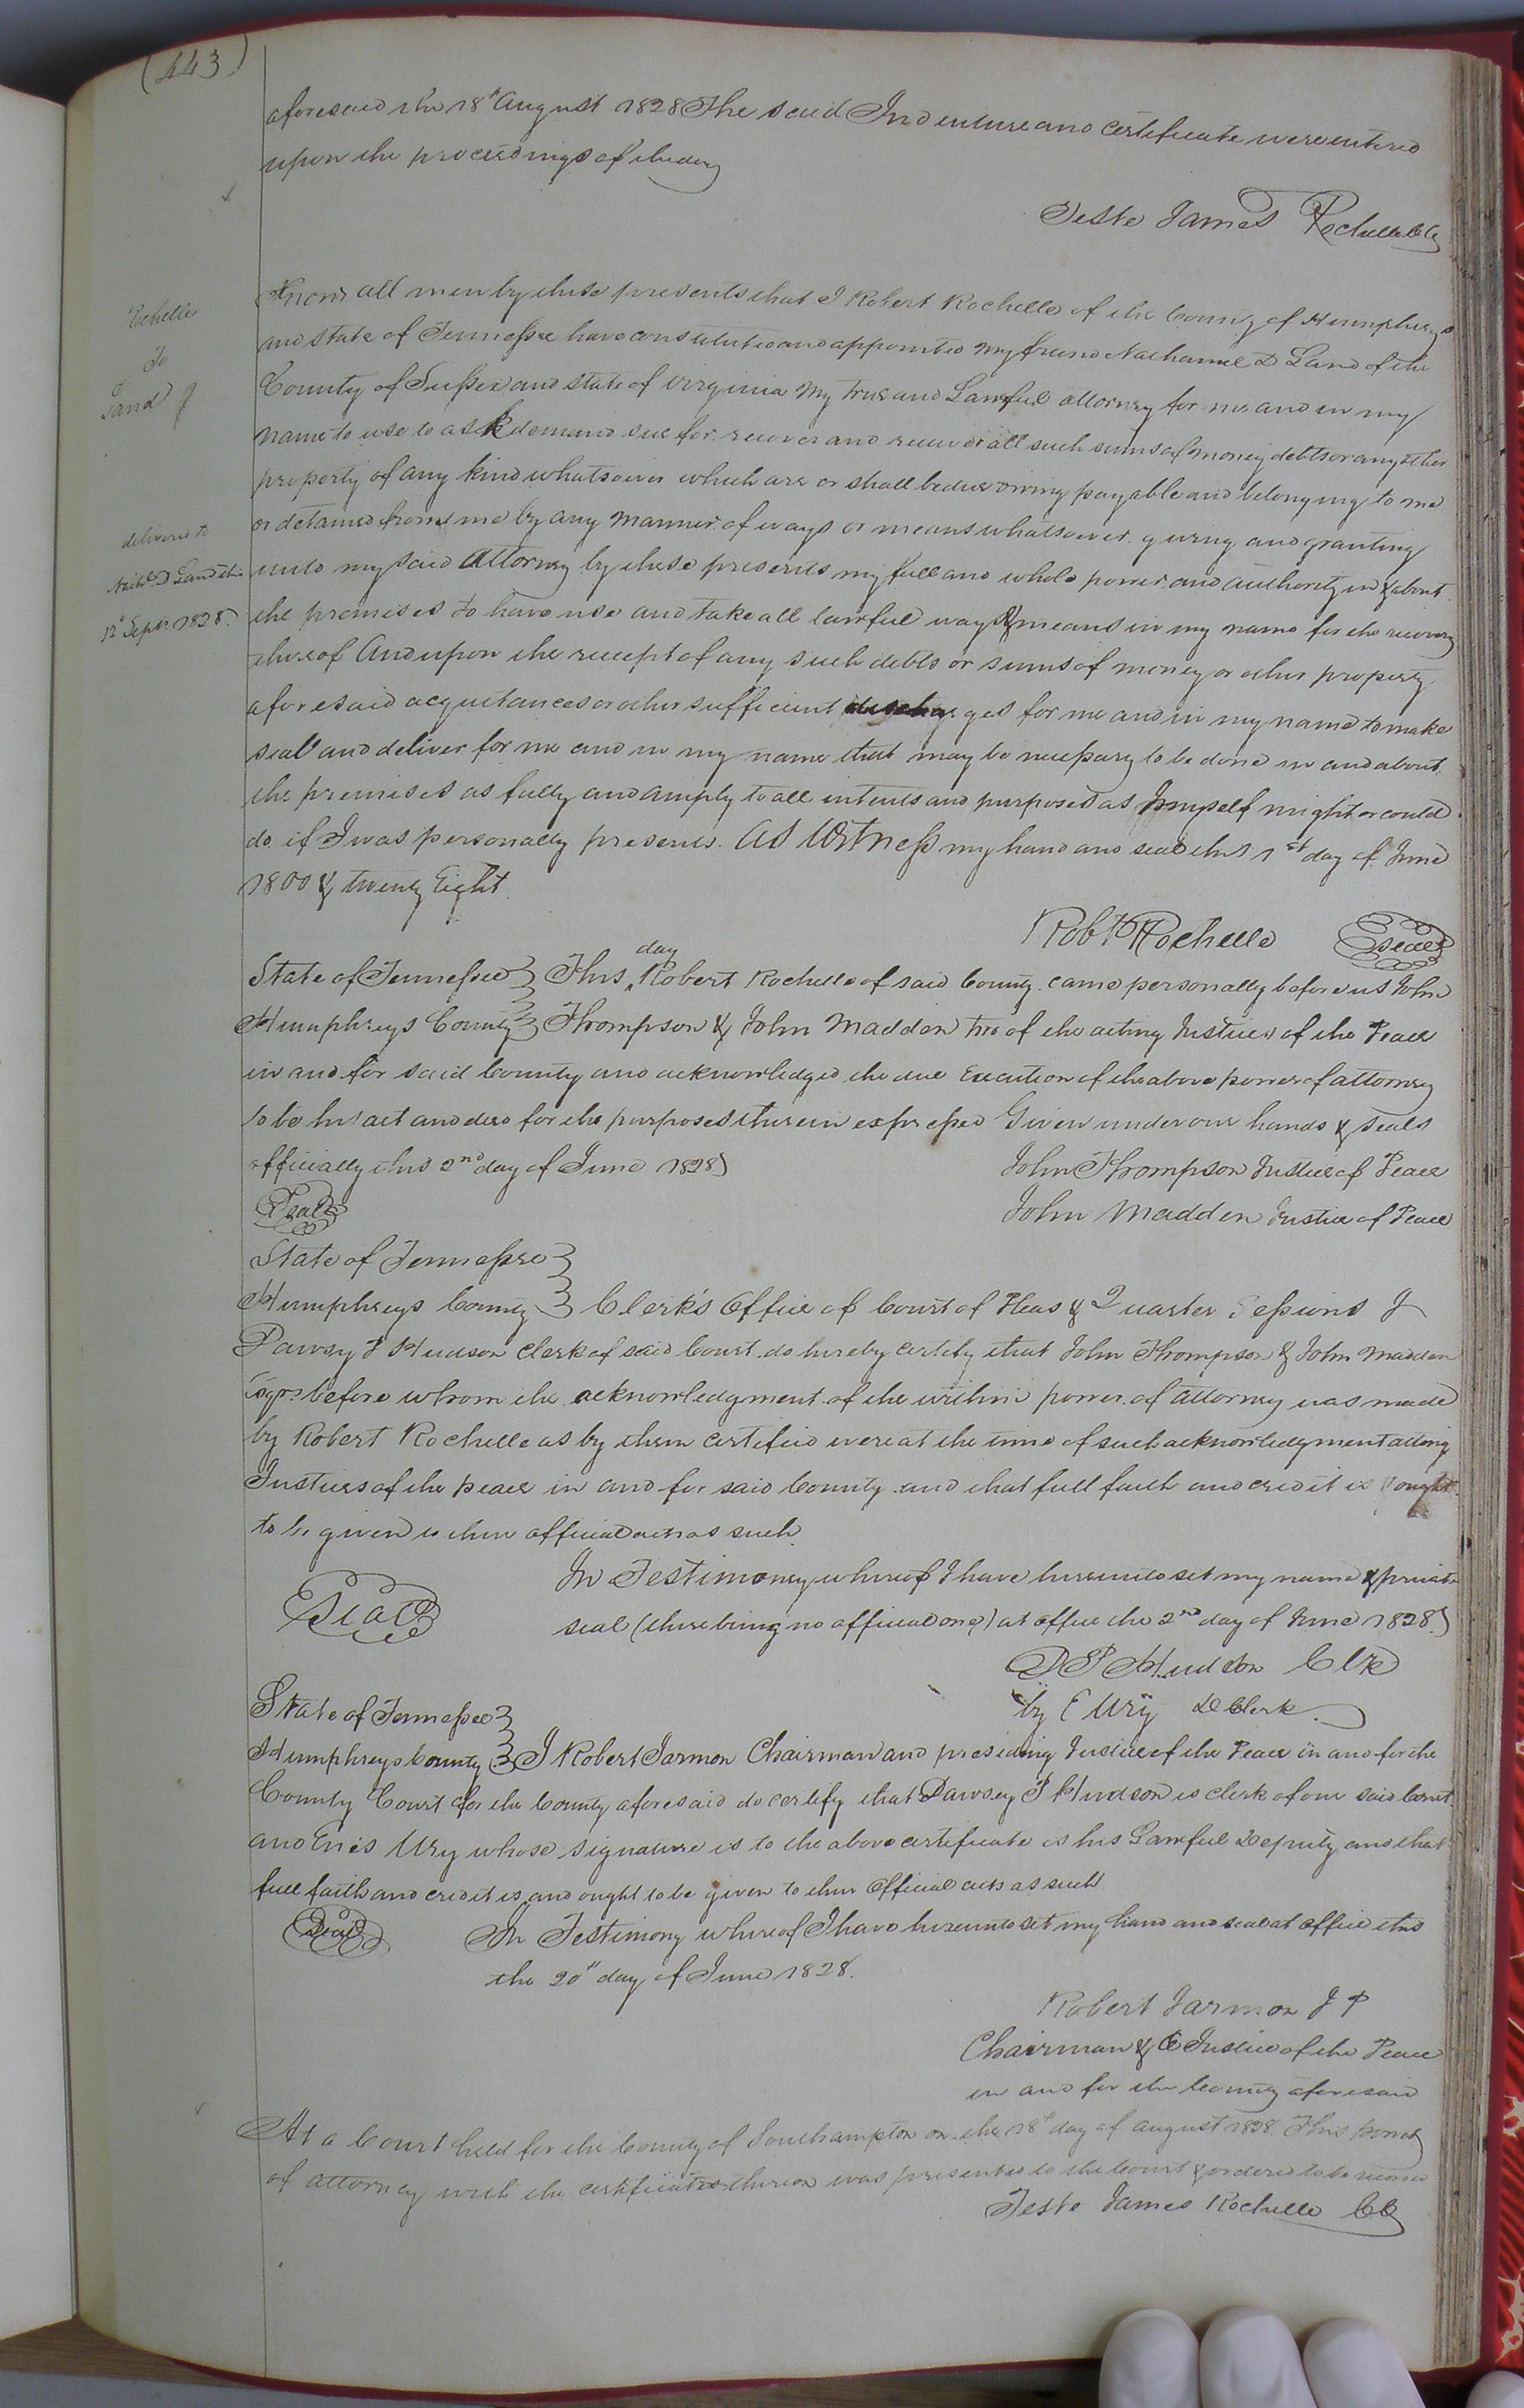 (443)
aforesaid the 18th August 1828 The said Indenture and certificate were entered
upon the proceedings of the day
Teste James Rochelle CC
Rochelle
To
Land
Know all men by these presents that I Robert Rochelle of the County of Humphreys
and State of Tennessee have constituted and appointed my friend Nathaniel D Land of the
County of Sussex and State of Virginia My true and Lawful attorney for me and in my
name to use to ask demand sue for recover and receive all such sums of money debts or any other
property of any kind whatsoever which are or shall be due owing payable and belonging to me
or detained from me by any manner of ways or means whatsoever giving and granting
delivered to
Nathl D Land this
12th Septr 1828.
unto my said Attorney by these presents my full and whole power and authority in & about
the premises to have use and take all lawful ways & means in my name for the recovery
thereof And upon the receipt of any such debts or sums of money or other property
aforesaid acquitances or other sufficient discharges for me and in my name to make
seal and deliver for me and in my name that may be necessary to be done in and about
the premises as fully and amply to all intents and purposes as I myself might or could
do if I was personally presents. As Witness my hand and seal this 1st day of June
1800 & twenty Eight.
Robt Rochelle Seal
State of Tennessee } This day Robert Rochelle of said County came personally before us John
Humphreys County } Thompson & John Madden two of the acting Justices of the Peace
in and for said County and acknowledged the due Execution of the above power of attorney
to be his act and deed for the purposes therein expressed Given under our hands & seals
officially this 2nd day of June 1828 John Thompson Justice of Peace
Seal John Madden Justice of Peace
State of Tennessee }
Humphreys County } Clerk's Office of Court of Pleas & Quarter Sessions I
Dawsey P Hudson Clerk of said Court do hereby certify that John Thompson & John Madden
Esqrs before whom the acknowledgment of the within power of attorney was made
by Robert Rochelle as by them certified were at the time of such acknowledgment acting
Justices of the peace in and for said County and that full faith and credit is & ought
to be given to their official acts as such.
In Testimony whereof I have hereunto set my name & private
Seal
seal (there being no official one) at office the 2nd day of June 1828.
D P Hudson Clk
by E Ury D Clerk.
State of Tennessee }
Humphreys County } I Robert Jarmon Chairman and presiding Justice of the Peace in and for the
County Court for the County aforesaid do certify that Dawsey P Hudson is clerk of our said Court
and Ury whose signature is to the above certificate is his Lawful Deputy and that
full faith and credit is and ought to be given to their Official acts as such
Seal In Testimony whereof I have hereunto set my hand and seal at office this
the 20th day of June 1828.
Robert Jarmon J P
Chairman & Justice of the Peace
in and for the County aforesaid
At a Court held for the County of Southampton on the 18th day of August 1828. This power
of attorney with the certificates thereon was presented to the Court & ordered to be recorded
Teste James Rochelle CC